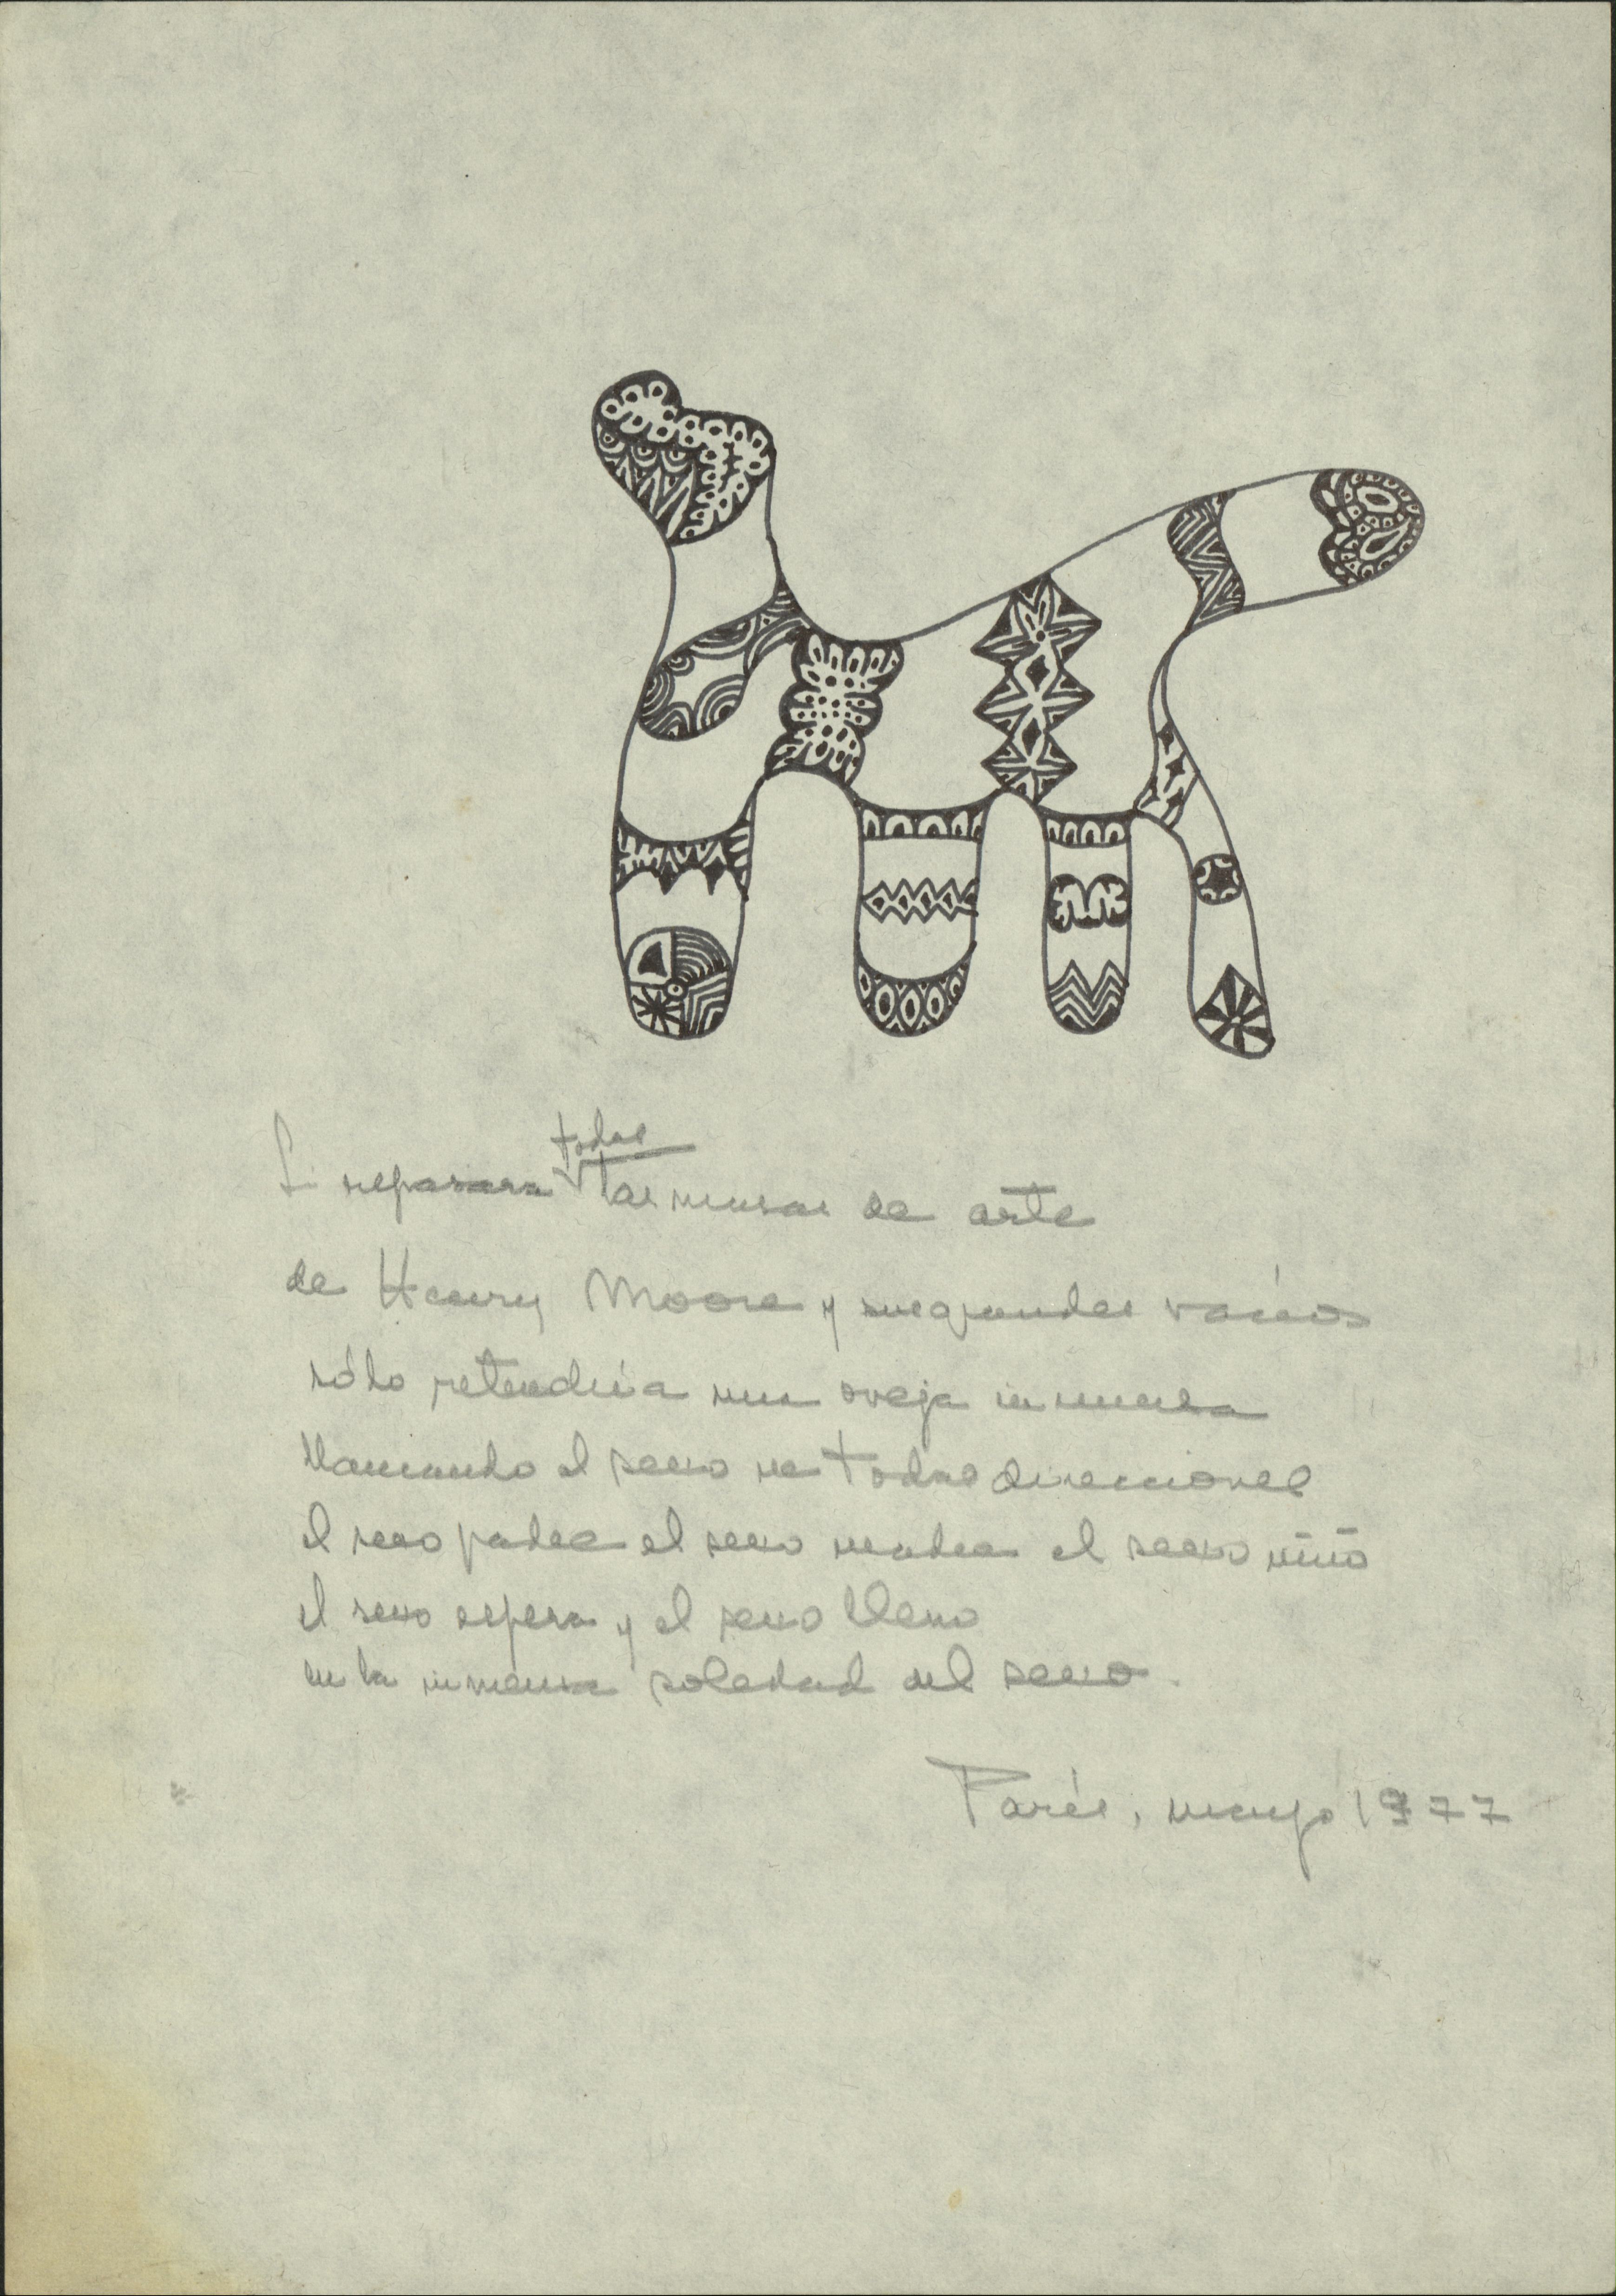 Si repasara todas las musas de arte
de Henry Moore y sus grandes vacíos
sólo retendría una oveja inmensa
llamando al sexo en todas direcciones
el sexo padre el sexo madre el sexo niño
el sexo espera y el sexo lleno
en la inmensa soledad del sexo.
París, mayo 1977